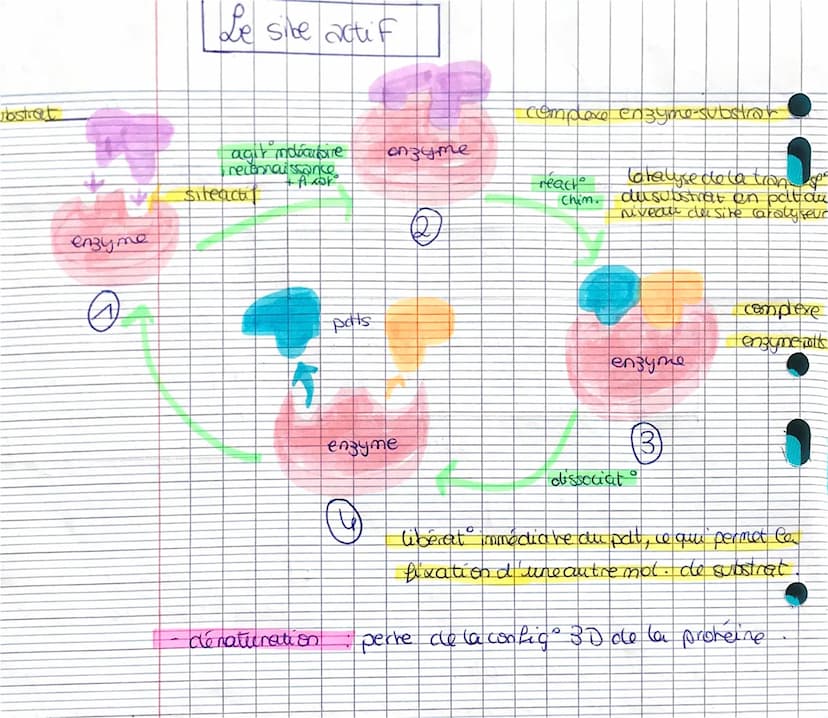 Le site actif
substrat
complexe enzyme-substrat
enzyme
agit° moléculaire
reconnaissance
+ fixat°
site actif
enzyme
2
réact°
chim.
catalyse de la
du substrat en pdt au
niveau du site catalyseur
1
pdts
complexe
enzyme-pdts
enzyme
enzyme
3
dissociat°
4
libérat° immédiate du pdt, ce qui permet la
fixation d'une autre mol. de substrat.
- dénaturation : perte de la config° 3D de la protéine.